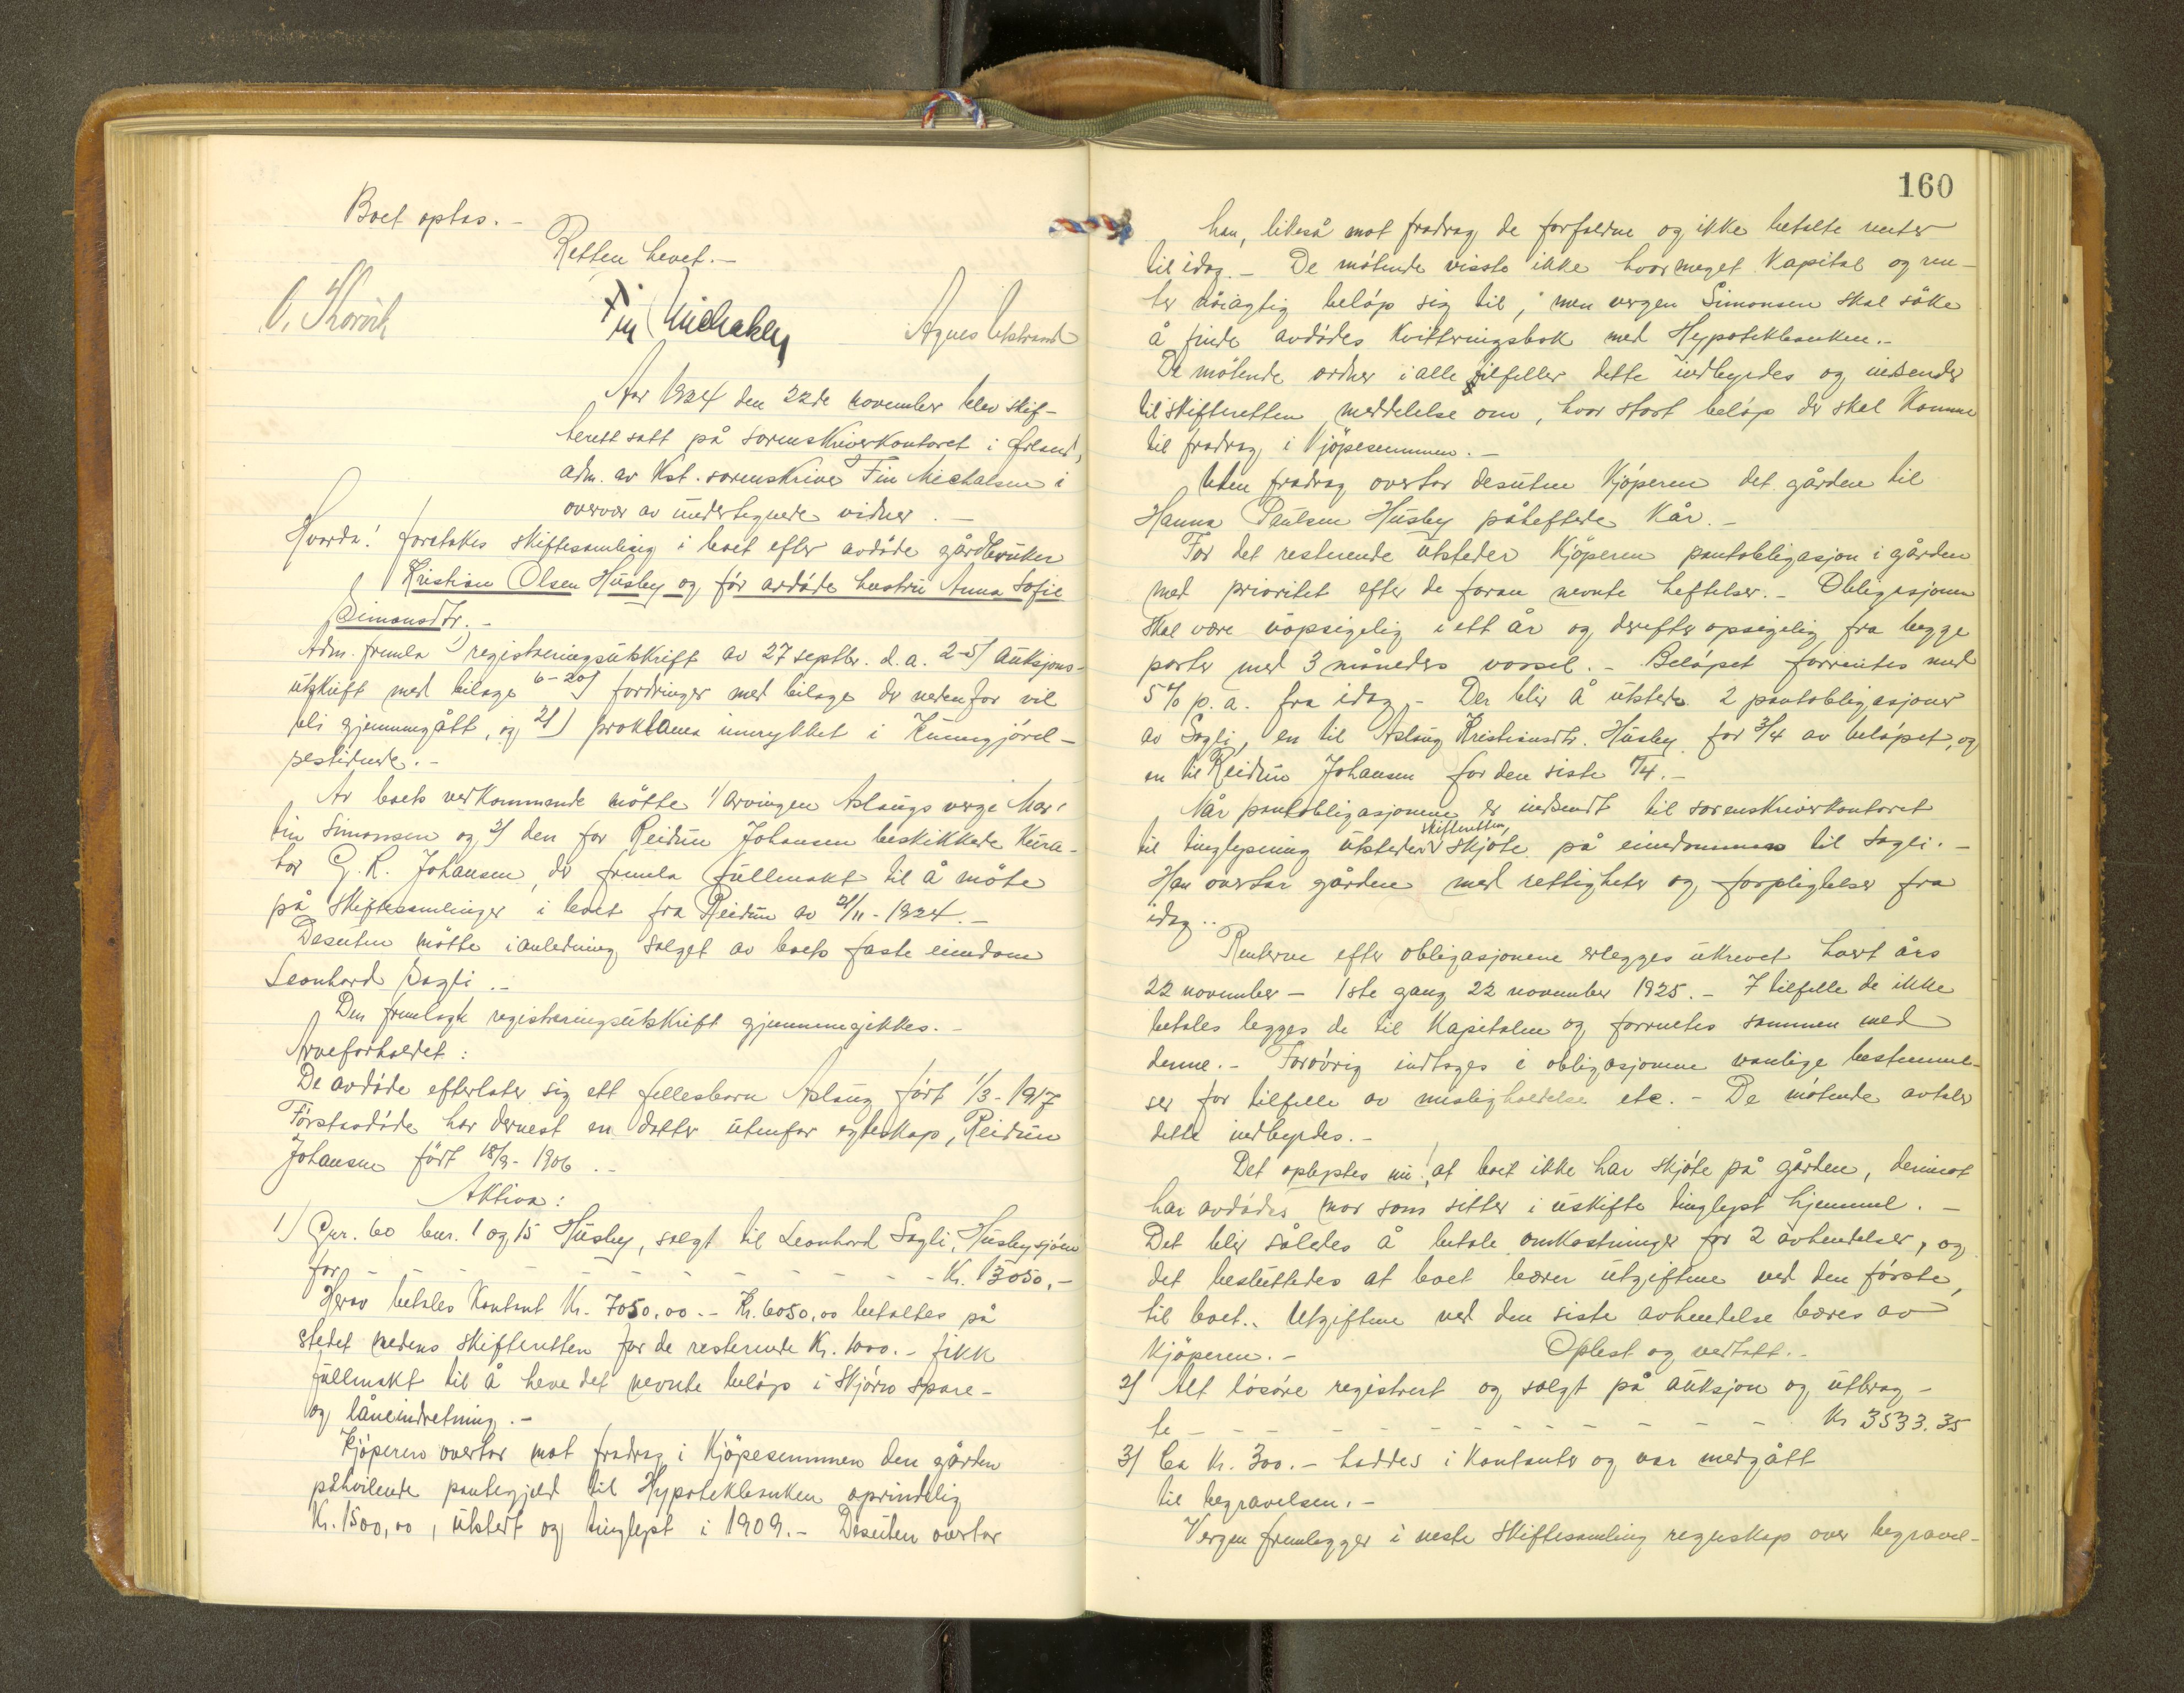 Boet optas. -
Retten hevet. -
Fin Michalsen
Agnes Utstrand
Aar 1924 den 22de november blev skif-
terett satt på sorenskriverkontoret i Ørland,
adm. av Kst. sorenskriver Fin Michalsen i
overvær av undertegnede vidner. -
Hvorda! foretokes skiftesamling i boet efter avdøde gårdbruker
Kristian Olsen Husby og før avdøde hustru Anna Sofie
Simonsdtr. -
Adm. fremla 1) registreringsutskrift av 27 septbr. d.a. 2-5) auksjons-
utskrift med bilage 6-20) fordringer med bilage der nedenfor vil
bli gjennemgått, og 21) proklama innrykket i Kunngjørel-
sestidende. -
Av boets vedkommende møtte 1) arvingen Aslaugs verge Mar-
tin Simonsen og 2) den for Reidun Johansen beskikkede Kura-
tor G. R. Johansen, der fremla fullmakt til å møte
på skiftesamlinger i boet fra Reidun av 21/11 - 1924. -
Desuten møtte i anledning salget av boets faste eiendom
Leonhard Sagli. -
Den fremlagte registreringsutskrift gjennemgikkes. -
Arveforholdet:
De avdøde efterlater sig ett fellesbarn Aslaug født 1/3 - 1917
Førstavdøde har dernest en datter utenfor egteskap, Reidun
Johansen født 18/9 - 1906. -
Aktiva:
1) Gnr. 60 bnr. 1 og 15 Husby, solgt til Leonhard Sagli, Husbysjøen
for - - - - - - - - - - Kr. 13050,-
Herav betales Kontant Kr. 7050,00. - Kr. 6050,00 betaltes på
stedet medens skifteretten for de resterende Kr. 1000. - fikk
fullmakt til å heve det nevnte beløp i Stjørn spare-
og låneindretning. -
Kjøperen overtar mot fradrag i Kjøpesummen den gården
påhvilende pantegjeld til Hypotekbanken oprindelig
Kr. 1500,00, utstedt og tinglyst i 1909. - Desuten overtar
160
han, likeså mot fradrag de forfaldne og ikke betalte renter
til idag. - De møtende visste ikke hvor meget Kapital og ren-
ter nøiagtig beløp sig til, men vergen Simonsen skal søke
å finde avdødes Kvitteringsbok med Hypotekbanken. -
De møtende ordner i alle tilfeller dette indbyrdes og indsender
til skifteretten meddelelse om, hvor stort beløp der skal Komme
til fradrag i Kjøpesummen. -
Uten fradrag overtar desuten Kjøperen det gården til
Hanna Paulsen Husby påheftede Kår. -
For det resterende utsteder Kjøperen pantobligasjon i gården
med prioritet efter de foran nevnte heftelser. - Obligasjonen
skal være uopsigelig i ett år og derefter opsigelig fra begge
parter med 3 måneders varsel. - Beløpet forrentes med
5 % p.a. fra idag. - Der blir å utstede 2 pantobligasjoner
av Sagli, en til Aslaug Kristiansdtr. Husby for 3/4 av beløpet, og
en til Reidun Johansen for den siste 1/4. -
Når pantobligasjonene er indsendt til sorenskriverkontoret
til tinglysning utsteder skifteretten skjøte på eiendommen til Sagli. -
Han overtar gården med rettigheter og forpligtelser fra
idag. -
Renterne efter obligasjonene erlegges ukrevet hvert års
22 november - 1ste gang 22 november 1925. - I tilfelle de ikke
betales legges de til Kapitalen og forrentes sammen med
denne. - Forøvrig indtages i obligasjonene vanlige bestemmel-
ser for tilfelle av misligholdelse etc. - De møtende avtaler
dette indbyrdes. -
Det oplystes nu! at boet ikke har skjøte på gården, derimot
har avdødes mor som sitter i uskifte tinglyst hjemmel. -
Det blir således å betale omkostninger for 2 avhendelser, og
det besluttedes at boet bærer utgiftene ved den første,
til boet. - Utgiftene ved den siste avhendelse bæres av
Kjøperen. - Oplest og vedtatt. -
2) Alt løsøre registrert og solgt på auksjon og utbrag-
te - - - - - - - - - - Kr 3533.35
3) Ca Kr. 300. - haddes i Kontanter og var medgått
til begravelsen. -
Vergen fremlegger i neste skiftesamling regnskap over begravel-